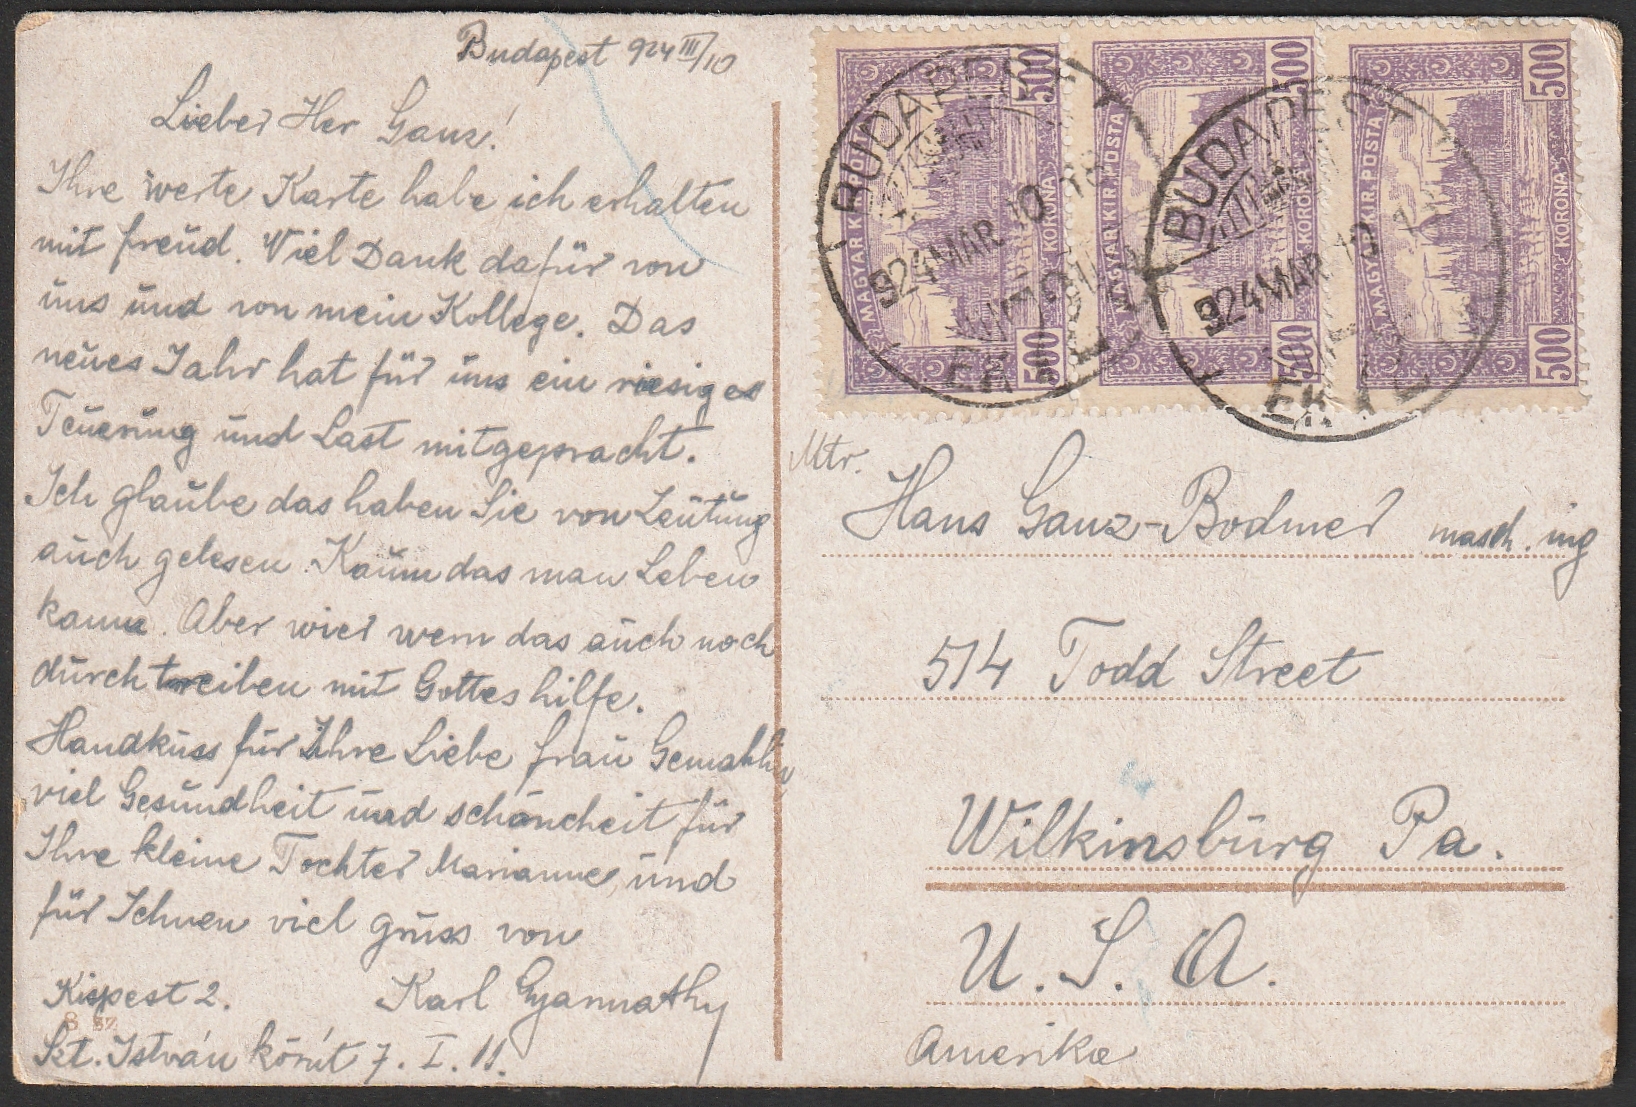 Budapest 924 III/10
Lieber Her Ganz!
Ihre werte Karte habe ich erhalten
mit freud. Viel Dank dafür von
uns und von mein Kollege. Das
neues Jahr hat für uns ein riesiges
Teuerung und Last mitgepracht.
Ich glaube das haben Sie von Zeutung
auch gelesen. Kaum das man Leben
kann. Aber wier wern das auch noch
durchtreiben mit Gottes hilfe.
Handkuss für Ihre Liebe frau Gemahlin
viel Gesundheit und schöncheit für
Ihre kleine Tochter Marianne, und
für Ichnen viel gruss von
Karl Gyarmathy
Kispest 2.
8 sz
Szt. István körút 7. I. 11.
500 500 500
MAGYAR KIR. POSTA MAGYAR KIR. POSTA MAGYAR KIR. POSTA
KORONA KORONA KORONA
500 500 500
BUDAPEST
924 MAR 10
BUDAPEST
924 MAR 10
Mtr.
Hans Ganz-Bodmer masch. ing
514 Todd Street
Wilkinsburg Pa.
U. S. A.
Amerika